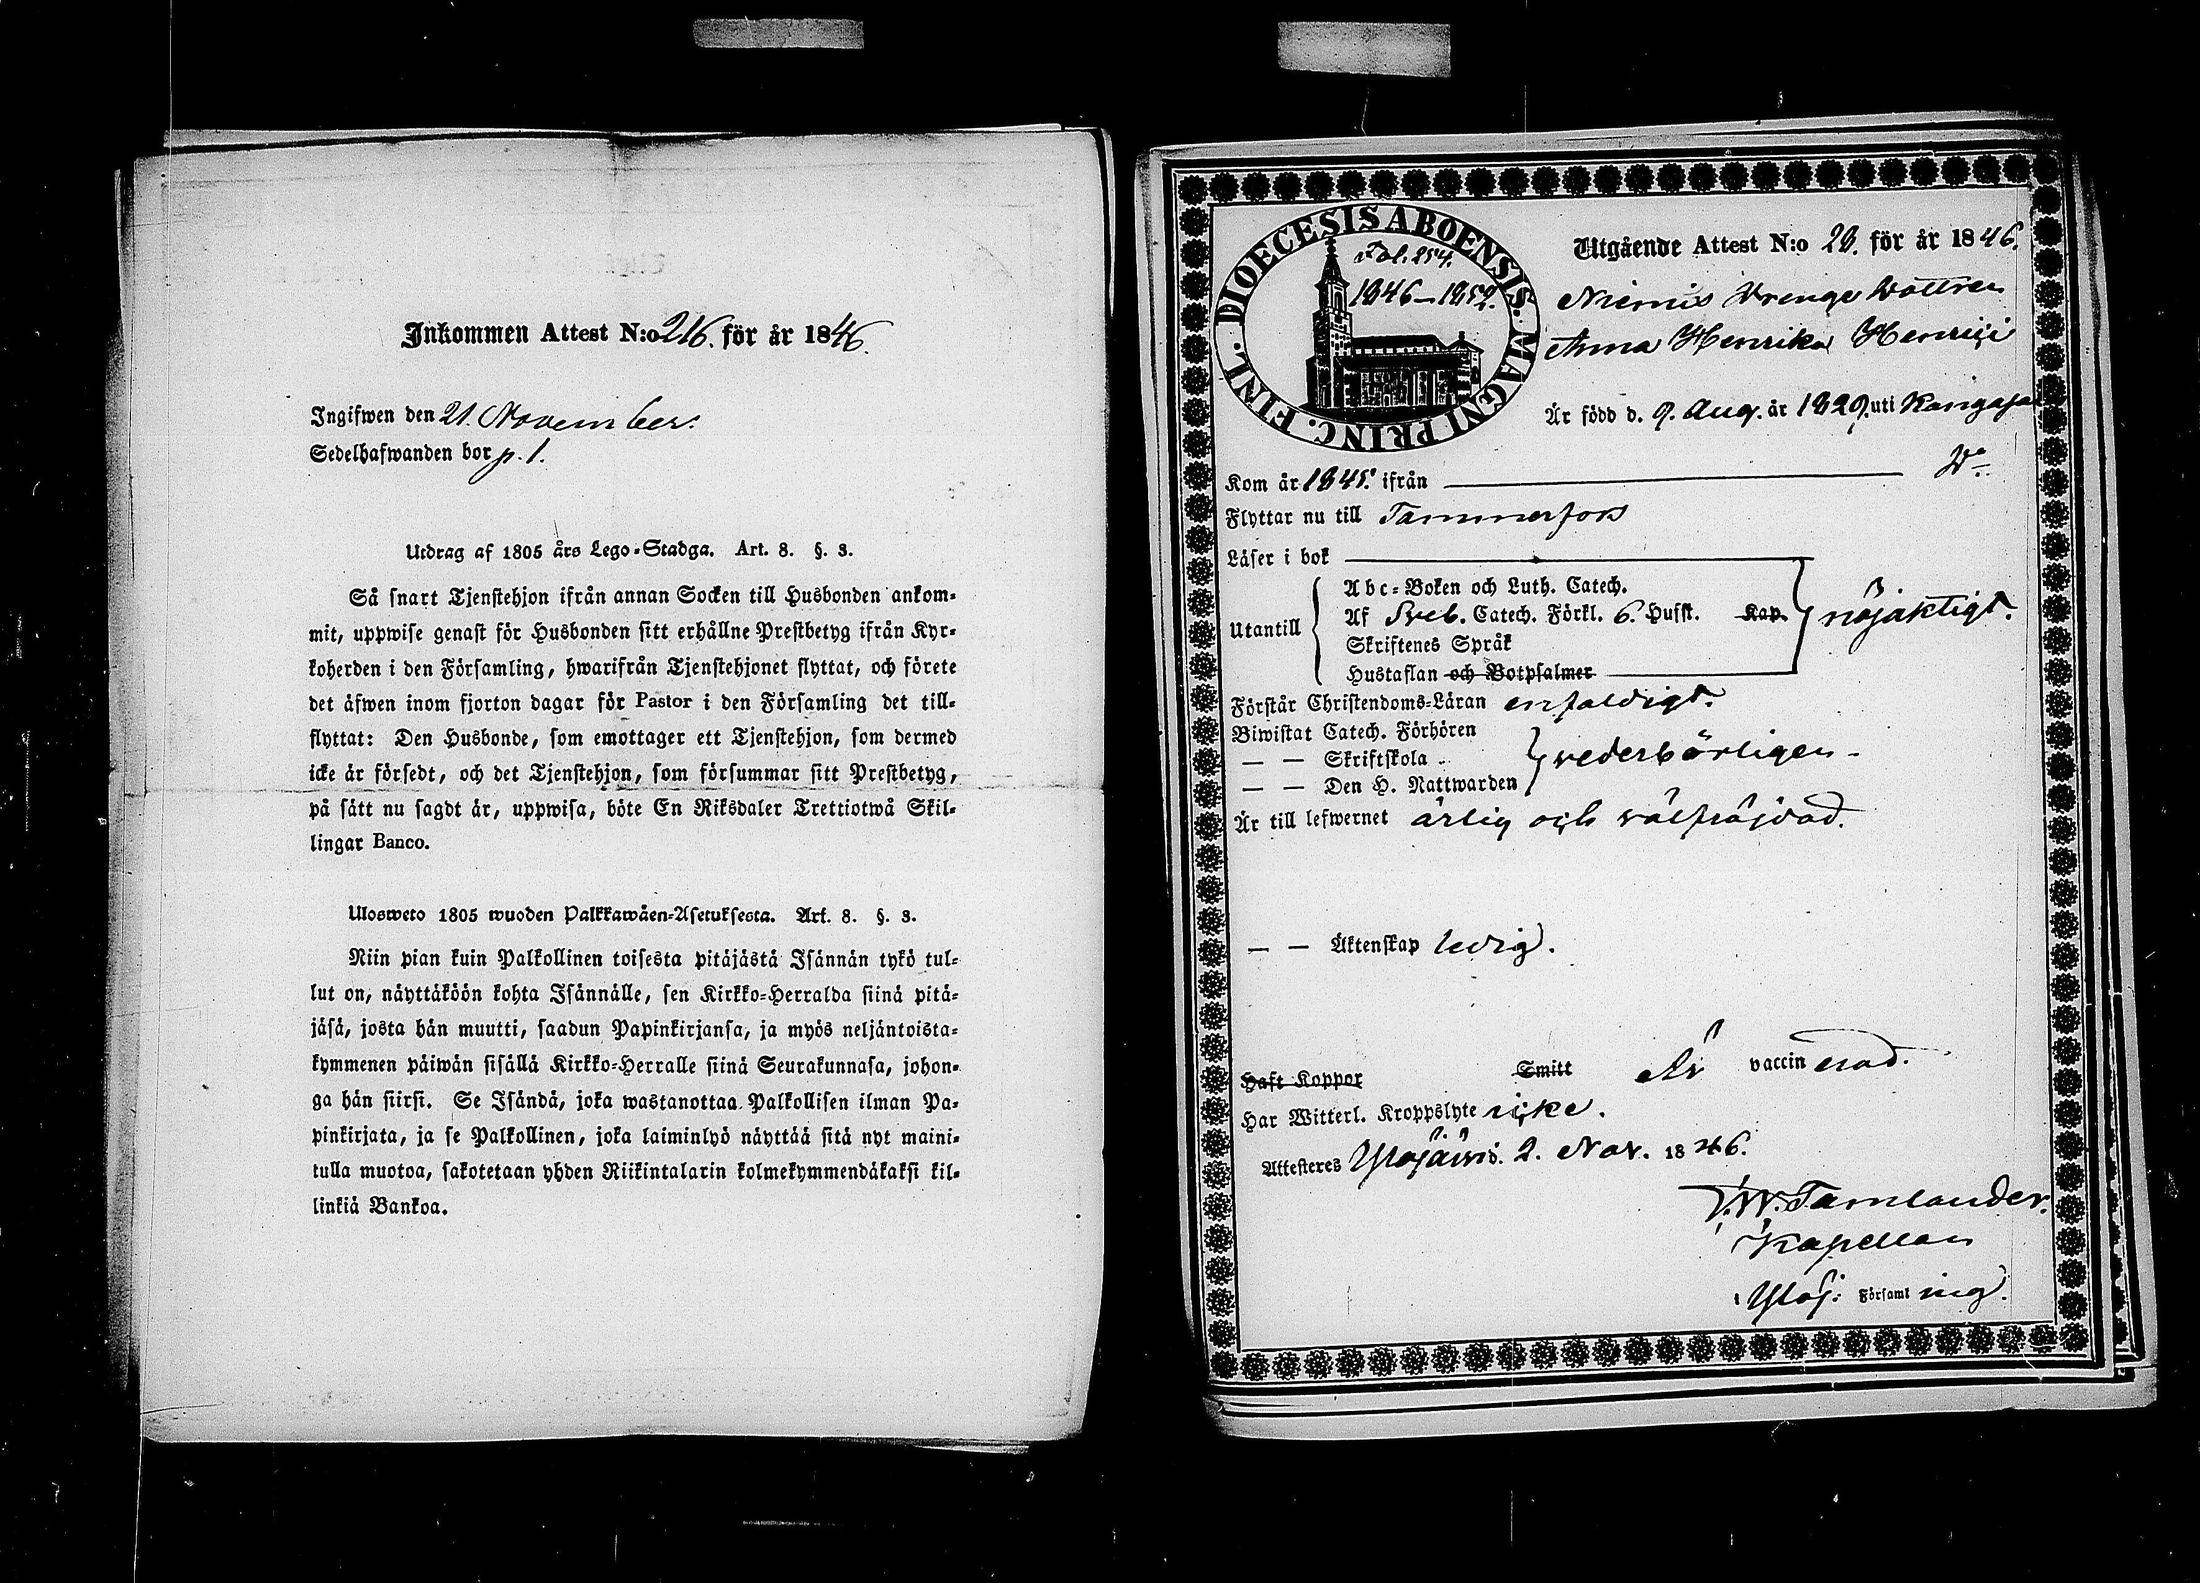 Inkommen Attest N:o 216. för år 1846.
Ingifwen den 21. November.
Sedelhafwanden bor p. 1.
Utdrag af 1805 års Lego-Stadga. Art. 8. §. 3.
Så snart Tjenstehjon ifrån annan Socken till Husbonden ankom-
mit, uppwise genast för Husbonden sitt erhållne Prestbetyg ifrån Kyr-
koherden i den Församling, hwarifrån Tjenstehjonet flyttat, och förete
det äfwen inom fjorton dagar för Pastor i den Församling det till-
flyttat: Den Husbonde, som emottager ett Tjenstehjon, som dermed
icke är försedt, och det Tjenstehjon, som försummar sitt Prestbetyg,
på sätt nu sagdt är, uppwisa, böte En Riksdaler Trettiotwå Skil-
lingar Banco.
Ulosweto 1805 wuoden Palkkawäen-Asetuksesta. Art. 8. §. 3.
Niin pian kuin Palkollinen toisesta pitäjästä Isännän tykö tul-
lut on, näyttäköön kohta Isännälle, sen Kirkko-Herralda siinä pitä-
jäsä, josta hän muutti, saadun Papinkirjansa, ja myös neljäntoista-
kymmenen päiwän sisällä Kirkko-Herralle siinä Seurakunnasa, johon-
ga hän siirsi. Se Isändä, joka wastanottaa Palkollisen ilman Pa-
pinkirjata, ja se Palkollinen, joka laiminlyö näyttää sitä nyt maini-
tulla muotoa, sakotetaan yhden Riikintalarin kolmekymmendäkaksi kil-
linkiä Bankoa.
DIOECESIS ABOENSIS. MAGNI PRINC. FINL.
Fol. 254.
1846–1852.
Utgående Attest N:o 28. för år 1846.
Niemis Drenge Dottren
Anna Henrika Henrici
Är född d. 9. Aug. år 1829. uti Kangasa
Kom år 1845. ifrån D:o
Flyttar nu till Tammerfors
Läser i bok
Abc-Boken och Luth. Catech.
Utantill Af Sveb. Catech. Förkl. 6. Hufst. Kap. nöjaktigt.
Skriftenes Språk
Hustaflan och Botpsalmer
Förstår Christendoms-Läran enfaldigt.
Biwistat Catech. Förhören
— — Skriftskola vederbörligen
— — Den H. Nattwarden
Är till lefwernet ärlig och välfräjdad.
— — Äktenskap ledig.
Haft Koppor Smitt Är vaccinerad.
Har Witterl. Kroppslyte icke.
Attesteres Ylöjärvi d. 2. Nov. 1846.
Tamlander.
Kapellan
i Ylöj: Församling.